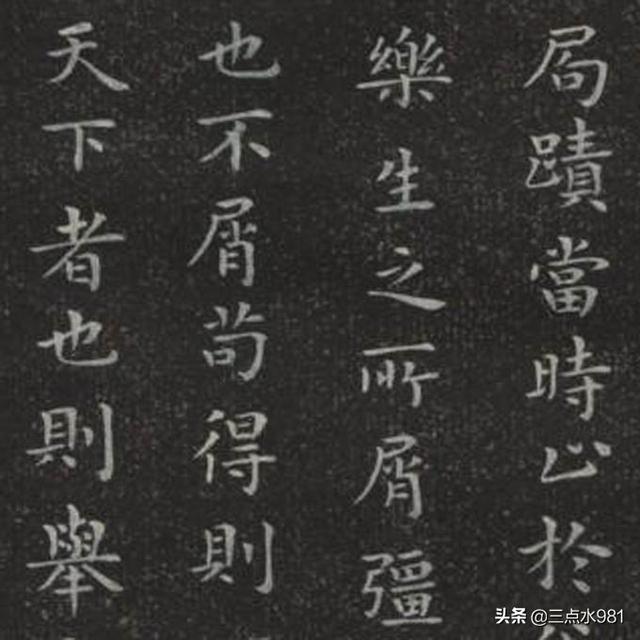 局蹟當時止於
樂生之所屑彊
也不屑苟得則
天下者也則舉
头条 @三点水981